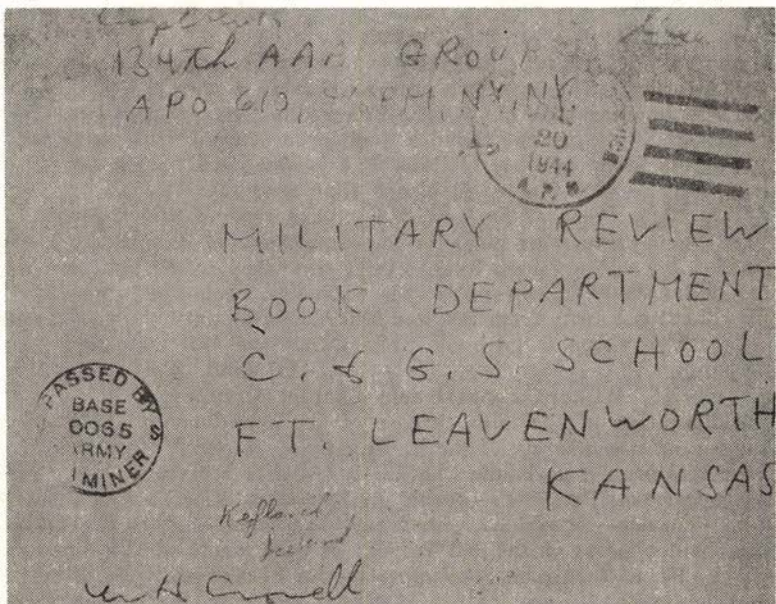 134th AAA GROUP
APO 610, % PM, NY, NY.
20
1944
A.P.O.
MILITARY REVIEW
BOOK DEPARTMENT
C. & G. S SCHOOL
FT. LEAVENWORTH
KANSAS
PASSED BY S
BASE
0065
ARMY
MINER